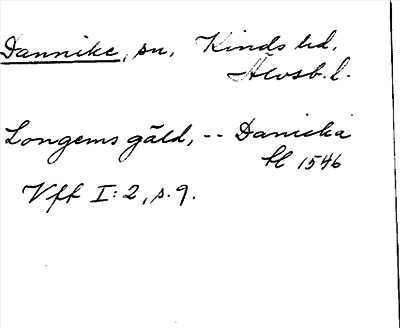 Dannike, sn, Kinds hd.
Älvsb. l.
Longems gäld, -- Danicka
hl 1546
Vff I:2, s. 9.